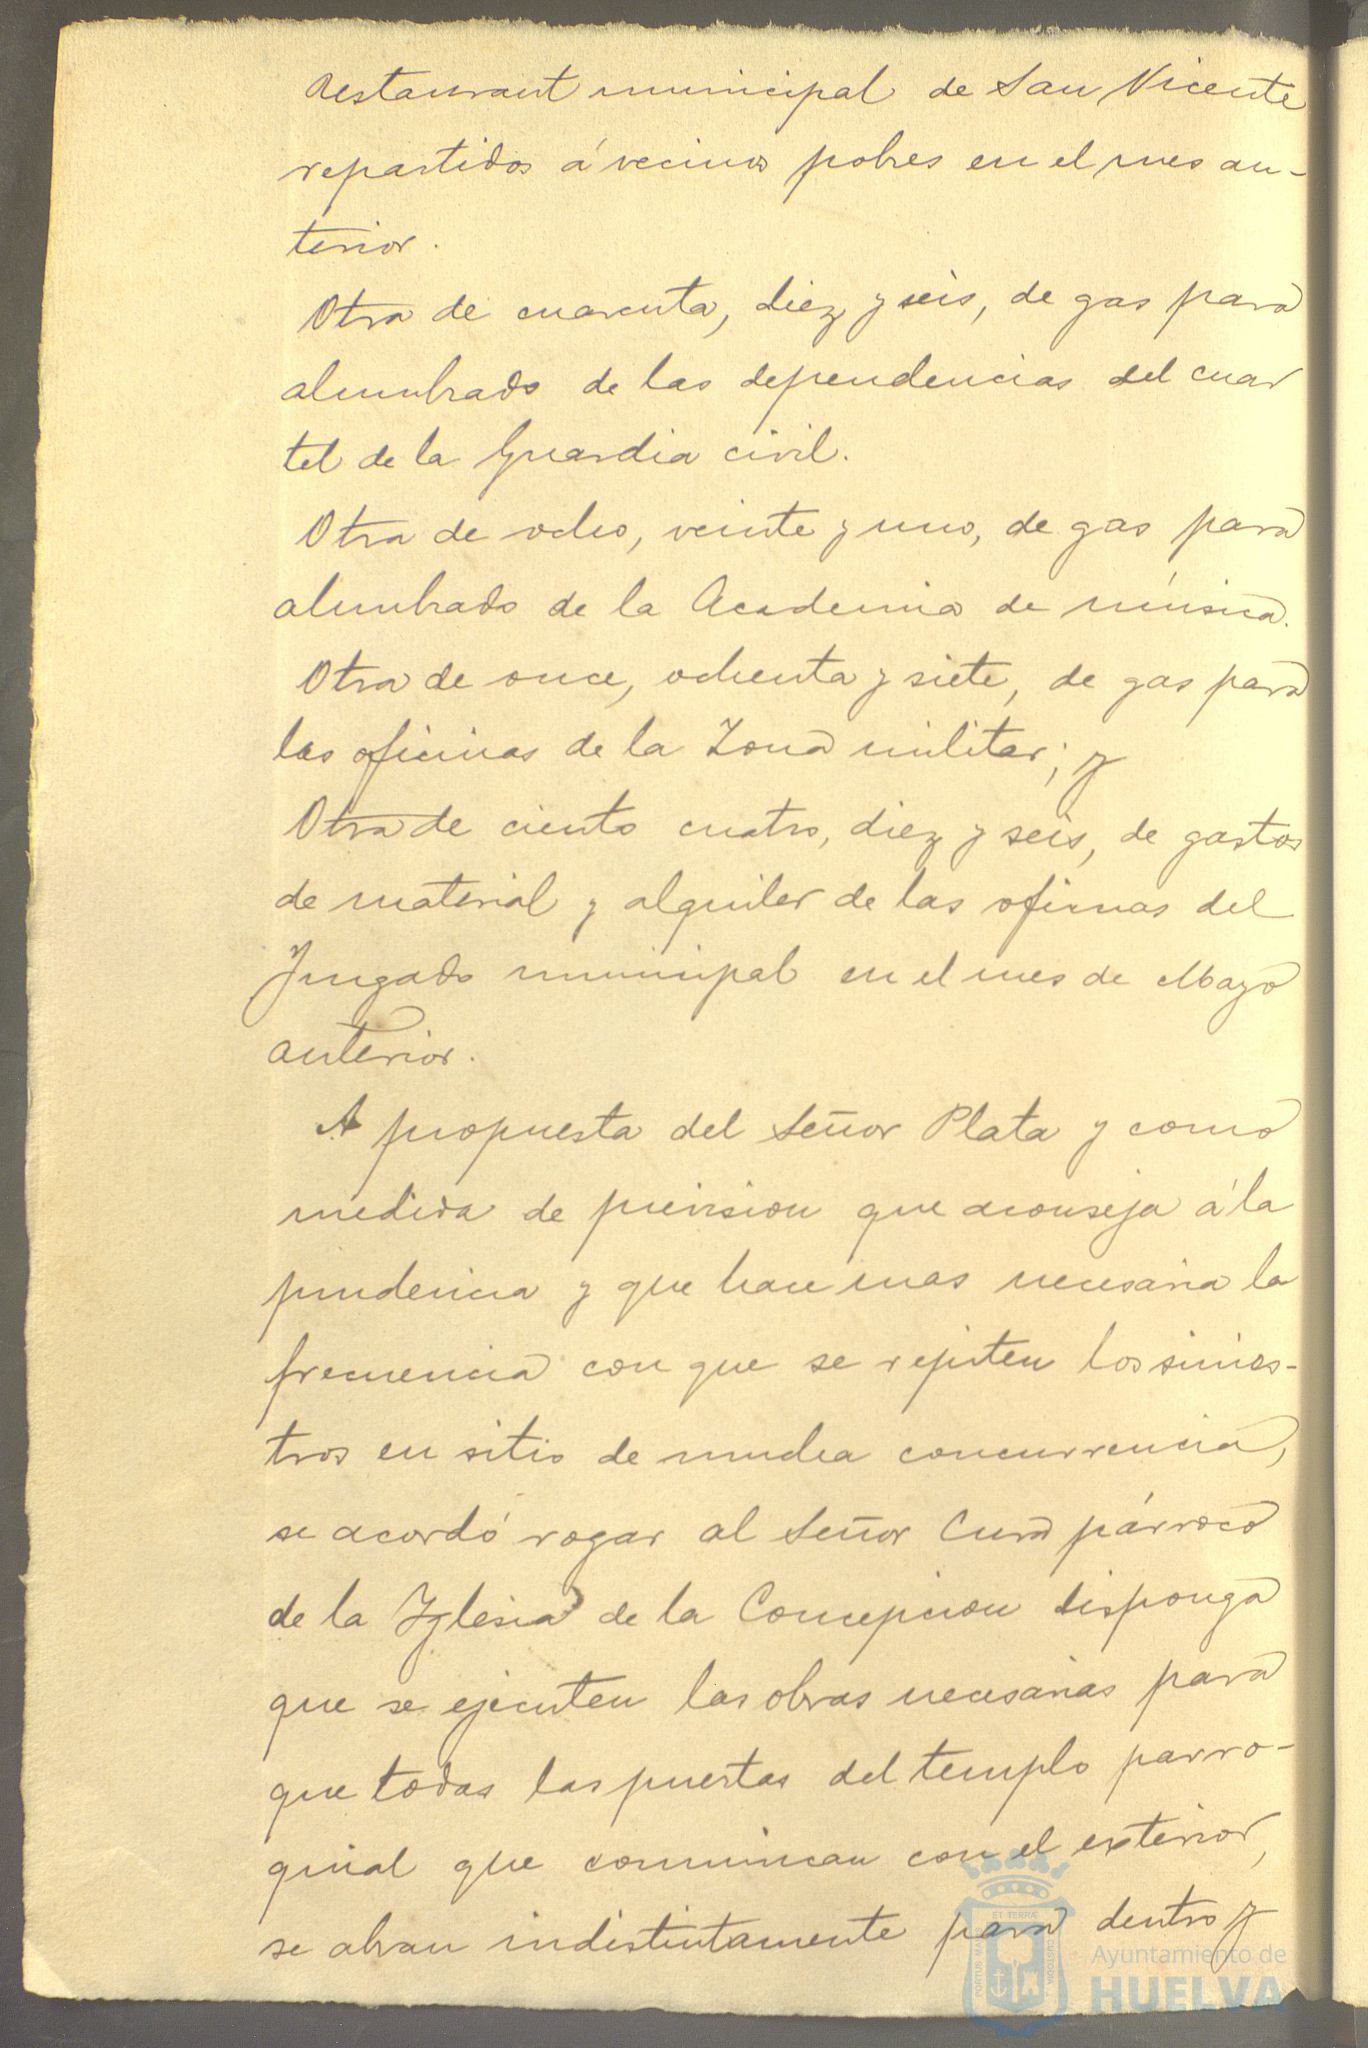 Restaurant municipal de San Vicente
repartidos á vecinos pobres en el mes an-
terior.
Otra de cuarenta, diez y seis, de gas para
alumbrado de las dependencias del cuar
tel de la Guardia civil.
Otra de ocho, veinte y uno, de gas para
alumbrado de la Academia de música.
Otra de once, ochenta y siete, de gas para
las oficinas de la Zona militar; y
Otra de ciento cuatro, diez y seis, de gastos
de material y alquiler de las oficinas del
Juzgado municipal en el mes de Mayo
anterior.
A propuesta del Señor Plata y como
medida de prevision que aconseja á la
prudencia y que hace mas necesaria la
frecuencia con que se repiten los sinies-
tros en sitio de mucha concurrencia,
se acordó rogar al Señor Cura párroco
de la Yglesia de la Concepcion disponga
que se ejecuten las obras necesarias para
que todas las puertas del templo parro-
quial que comunican con el exterior,
se abran indistintamente para dentro y
PORTUS MARIS ET TERRÆ CUSTODIA
Ayuntamiento de
HUELVA